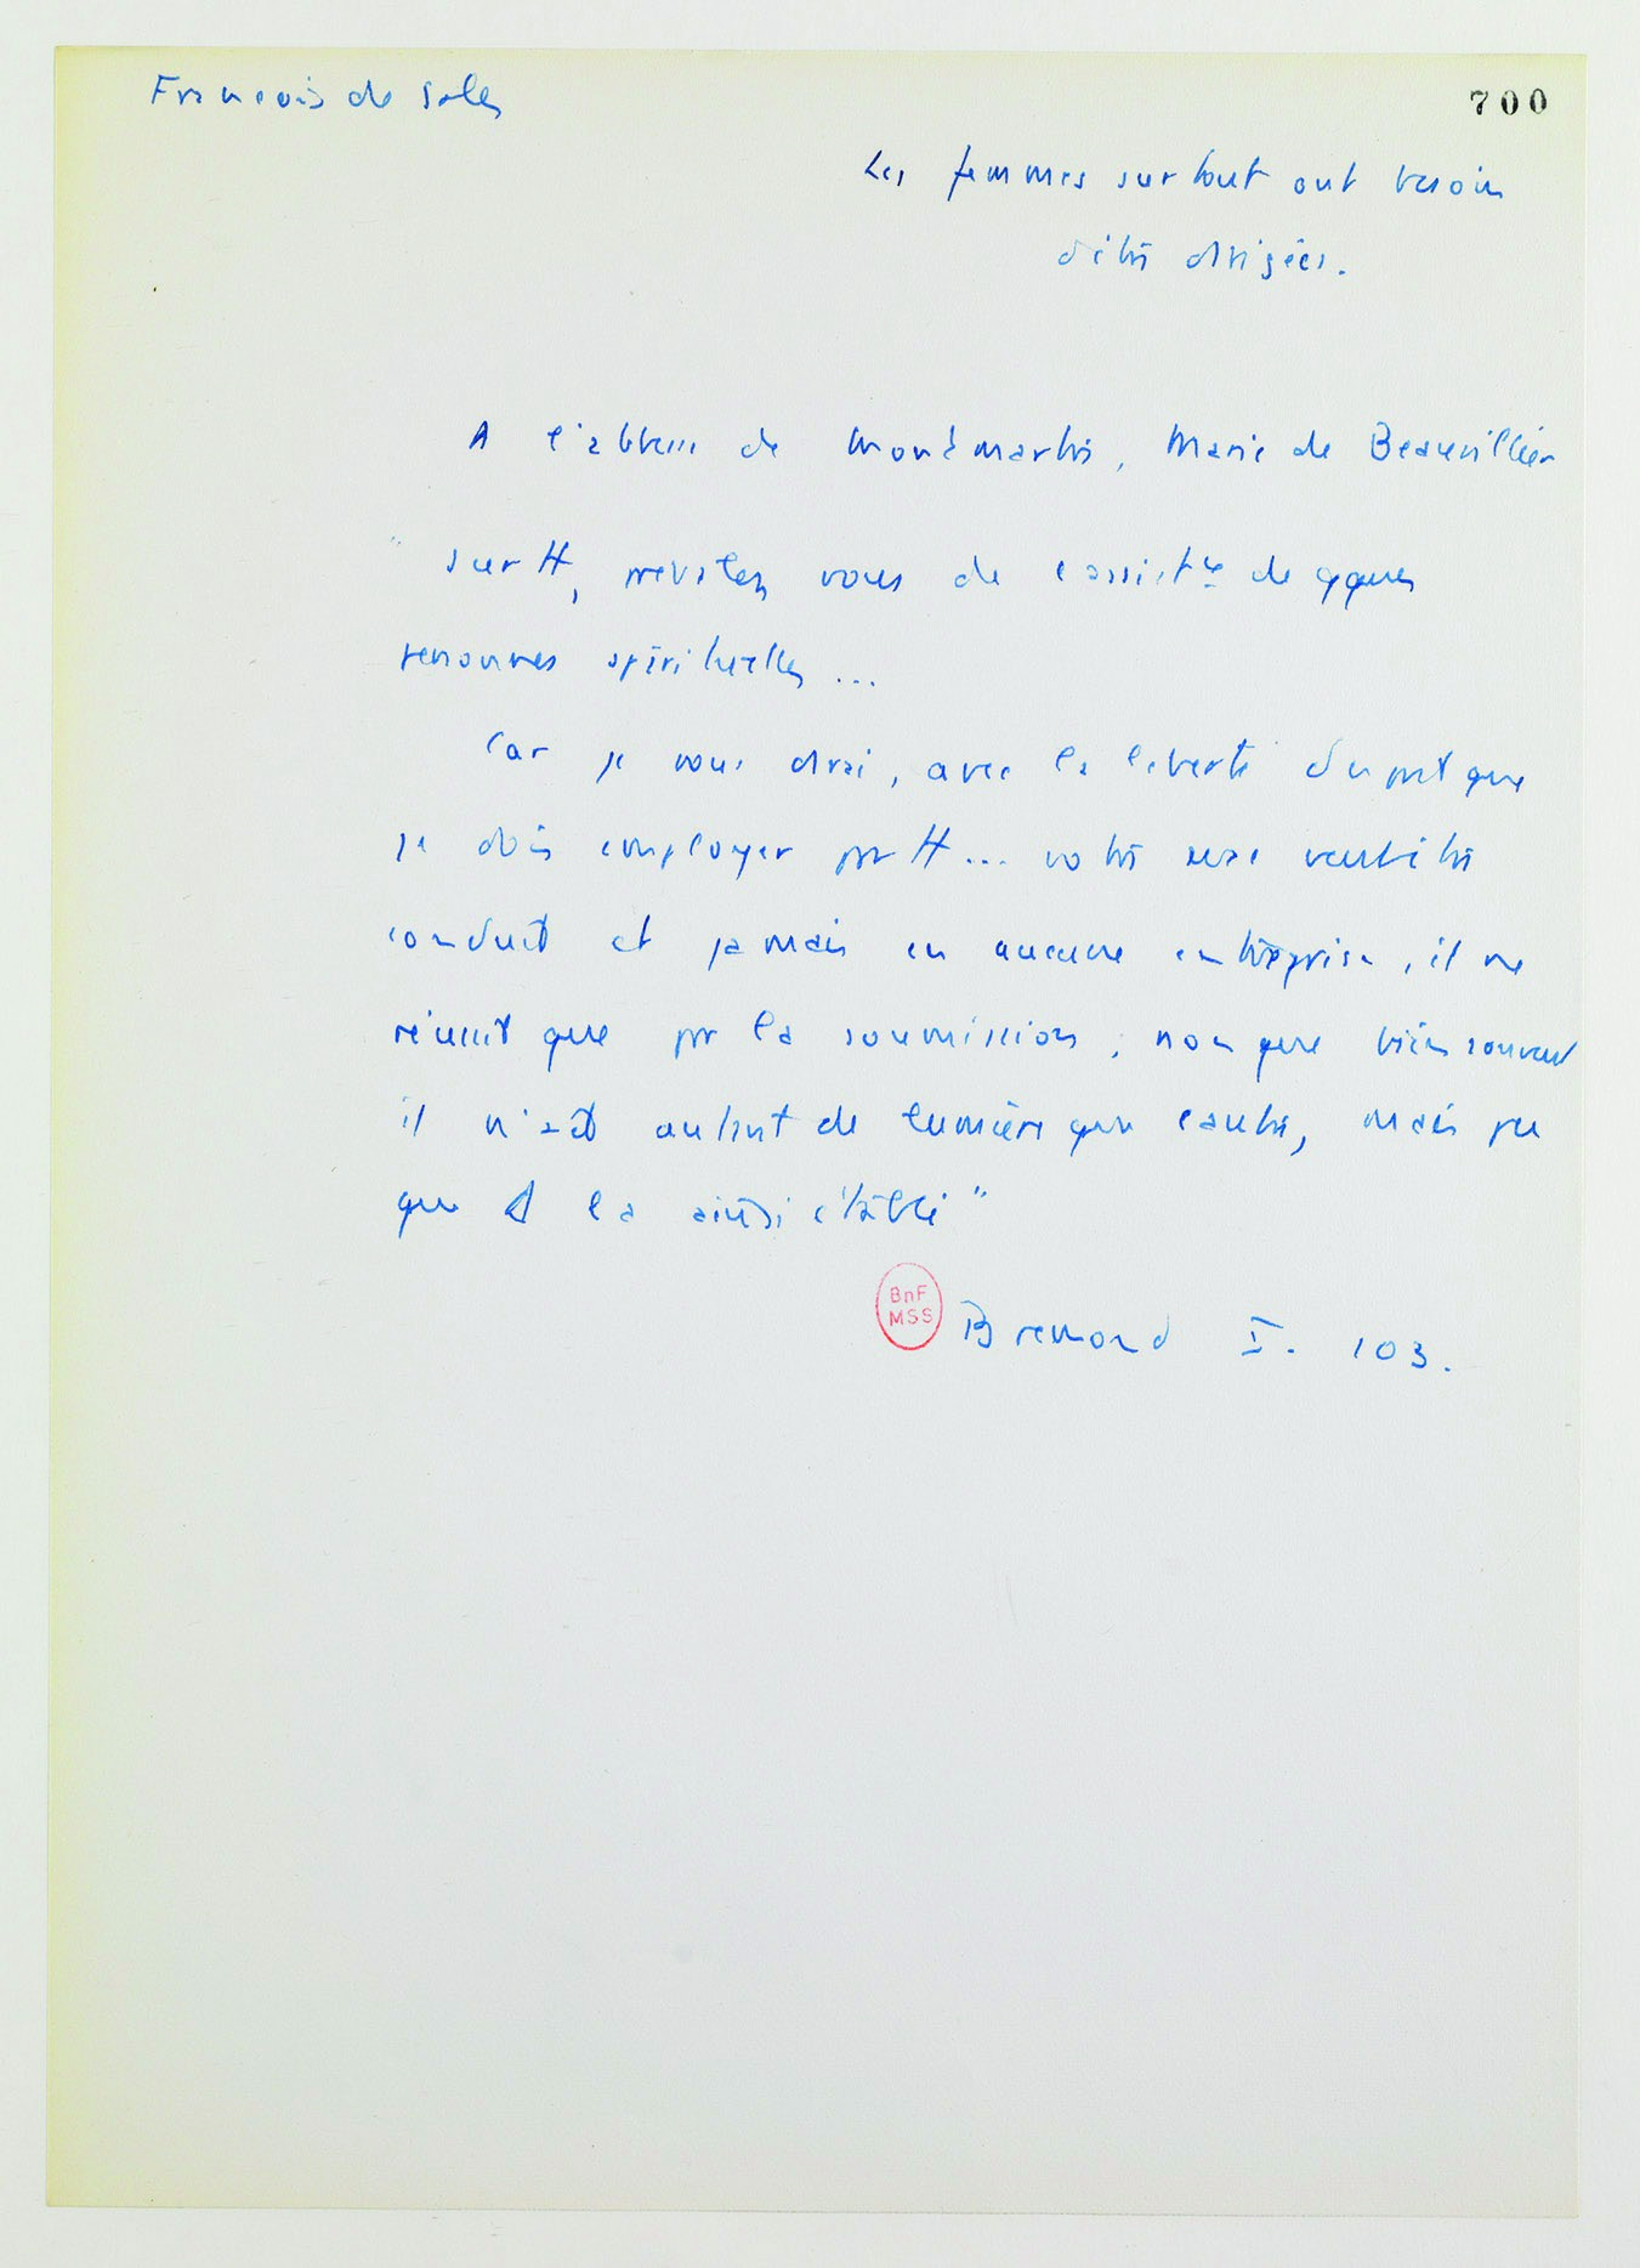 François de Sales
700
Les femmes surtout ont besoin
d'être dirigées.
A l'abbesse de Montmartre, Marie de Beauvillier
" surtt, prévalez vous de l'assistce de qques
personnes spirituelles ...
Car je vous dirai, avec la liberté d'esprit que
je dois employer prtt ... votre sexe veut être
conduit et jamais en aucune entreprise, il ne
réussit que pr la soumission ; non que bien souvent
il n'ait autant de lumière que l'autre, mais
que D l'a ainsi établi "
BnF
MSS
Bremond I. 103.